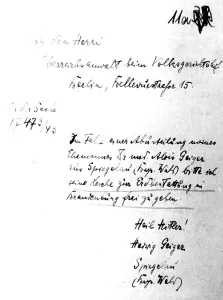 an den Herrn
Oberreichsanwalt beim Volksgerichtshof
Berlin, Bellevuestraße 15.
Im Falle einer Aburteilung meines
Ehemannes Dr. med. Alois Geiger
aus Spiegelau (Bayr. Wald) bitte ich
seine Leiche zur Erdbestattung in
Brandenburg frei zu geben.
Heil Hitler!
Hedwig Geiger
Spiegelau
(Bayr. Wald)